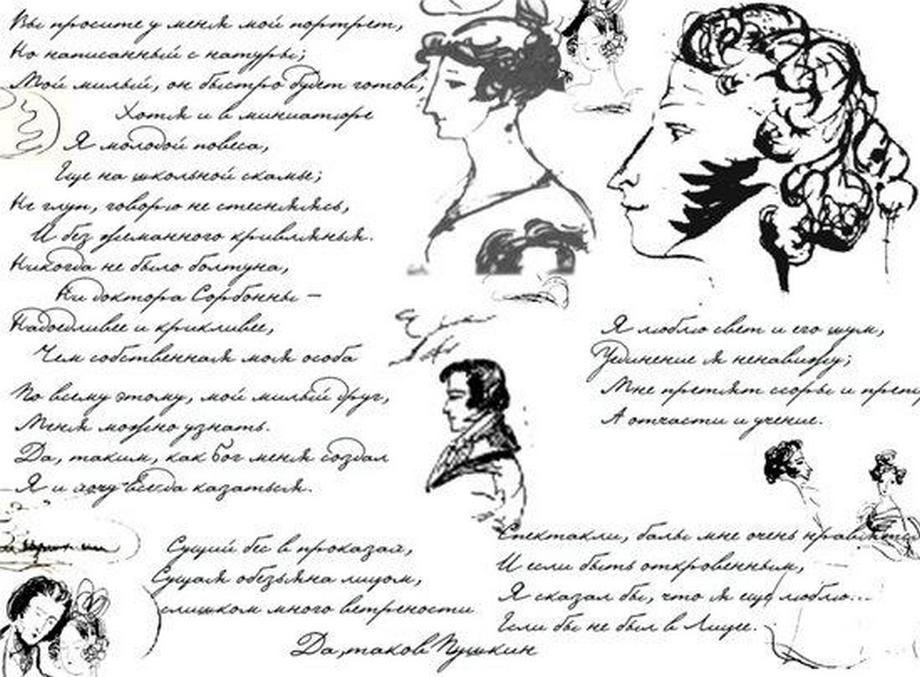 Вы просите у меня мой портрет,
Но написанный с натуры;
Мой милый, он быстро будет готов,
Хотя и в миниатюре
Я молодой повеса,
Еще на школьной скамье;
Не глуп, говорю не стесняясь,
И без жеманного кривлянья.
Никогда не было болтуна,
Ни доктора Сорбонны –
Надоедливее и крикливее,
Чем собственная моя особа
По всему этому, мой милый друг,
Меня можно узнать.
Да, таким, как Бог меня создал
Я и хочу всегда казаться.
Я люблю свет и его шум,
Уединение я ненавижу;
Мне претят ссоры и препи
А отчасти и учение.
Сущий бес в проказах,
Сущая обезьяна лицом,
слишком много ветрености
Да, таков Пушкин
Спектакли, балы мне очень нравятся
И если быть откровенным,
Я сказал бы, что я еще люблю...
Если бы не был в Лицее.